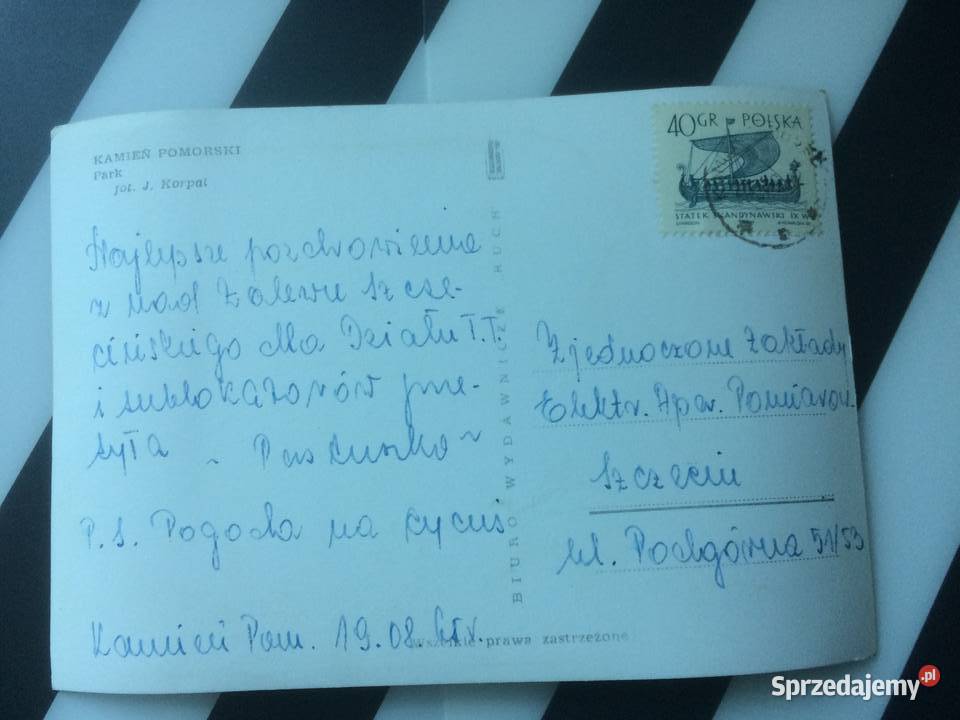 KAMIEŃ POMORSKI
Park
fot. J. Korpal
Najlepsze pozdrowienia
z nad Zalewu Szcze-
cińskiego dla Działu T.T.
i sublokatorów prze-
syła
P.S. Pogoda na cycuś
Kamień Pom. 19.08.
BIURO WYDAWNICZE RUCH
Wszelkie prawa zastrzeżone
40GR POLSKA
STATEK SKANDYNAWSKI IX W
Zjednoczone Zakłady
Elektr. Apar. Pomiarow.
Szczecin
ul. Podgórna 51/53
Sprzedajemy.pl